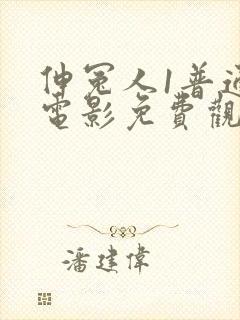 伸冤人1普通
電影免費觀
潘建偉